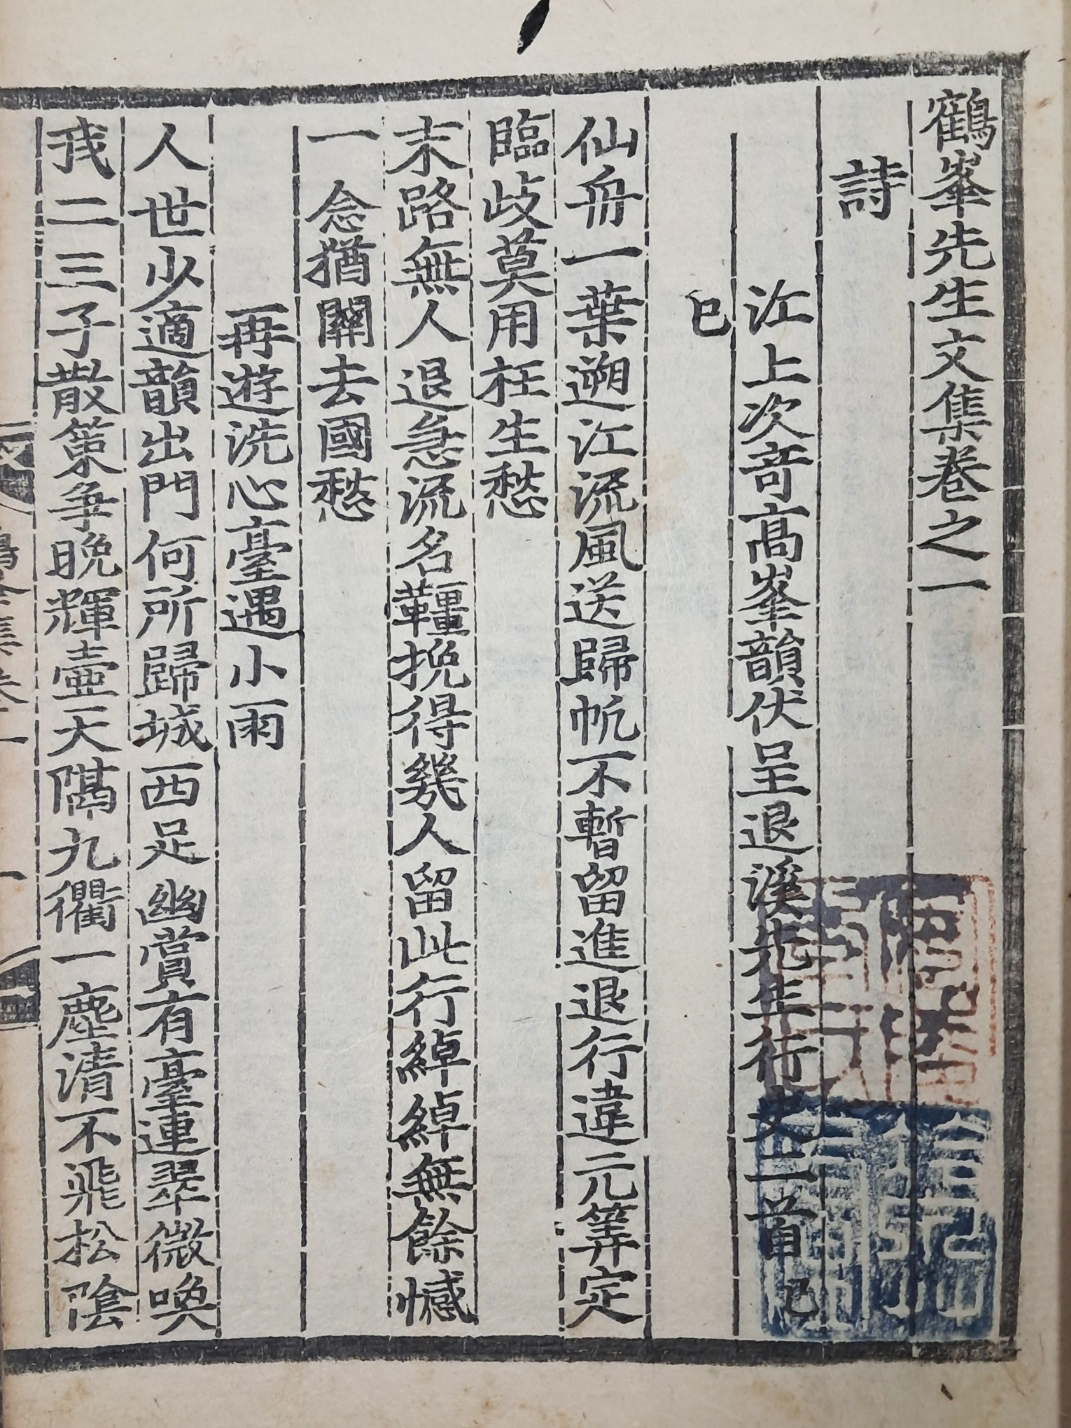 鶴峯先生文集卷之一
詩
江上次奇高峯韻伏呈退溪先生行史二首 己
巳
仙舟一葉遡江流風送歸帆不暫留進退行違元筭定
臨歧莫用枉生愁
末路無人退急流名韁挽得幾人留此行綽綽無餘憾
一念猶關去國愁
再遊洗心臺遇小雨
人世少適韻出門何所歸城西足幽賞有臺連翠微喚
我二三子散策爭晩輝壺天隔九衢一塵淸不飛松陰